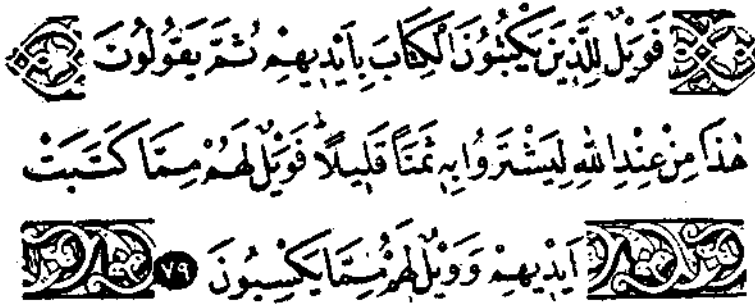 فَوَيْلٌ لِلَّذِينَ يَكْتُبُونَ الْكِتَابَ بِاَيْدِيهِمْ ثُمَّ يَقُولُونَ
هٰذَا مِنْ عِنْدِ اللّٰهِ لِيَشْتَرُوا بِهِ ثَمَنًا قَلِيلًاۜ فَوَيْلٌ لَهُمْ مِمَّا كَتَبَتْ
اَيْدِيهِمْ وَوَيْلٌ لَهُمْ مِمَّا يَكْسِبُونَ ٧٩